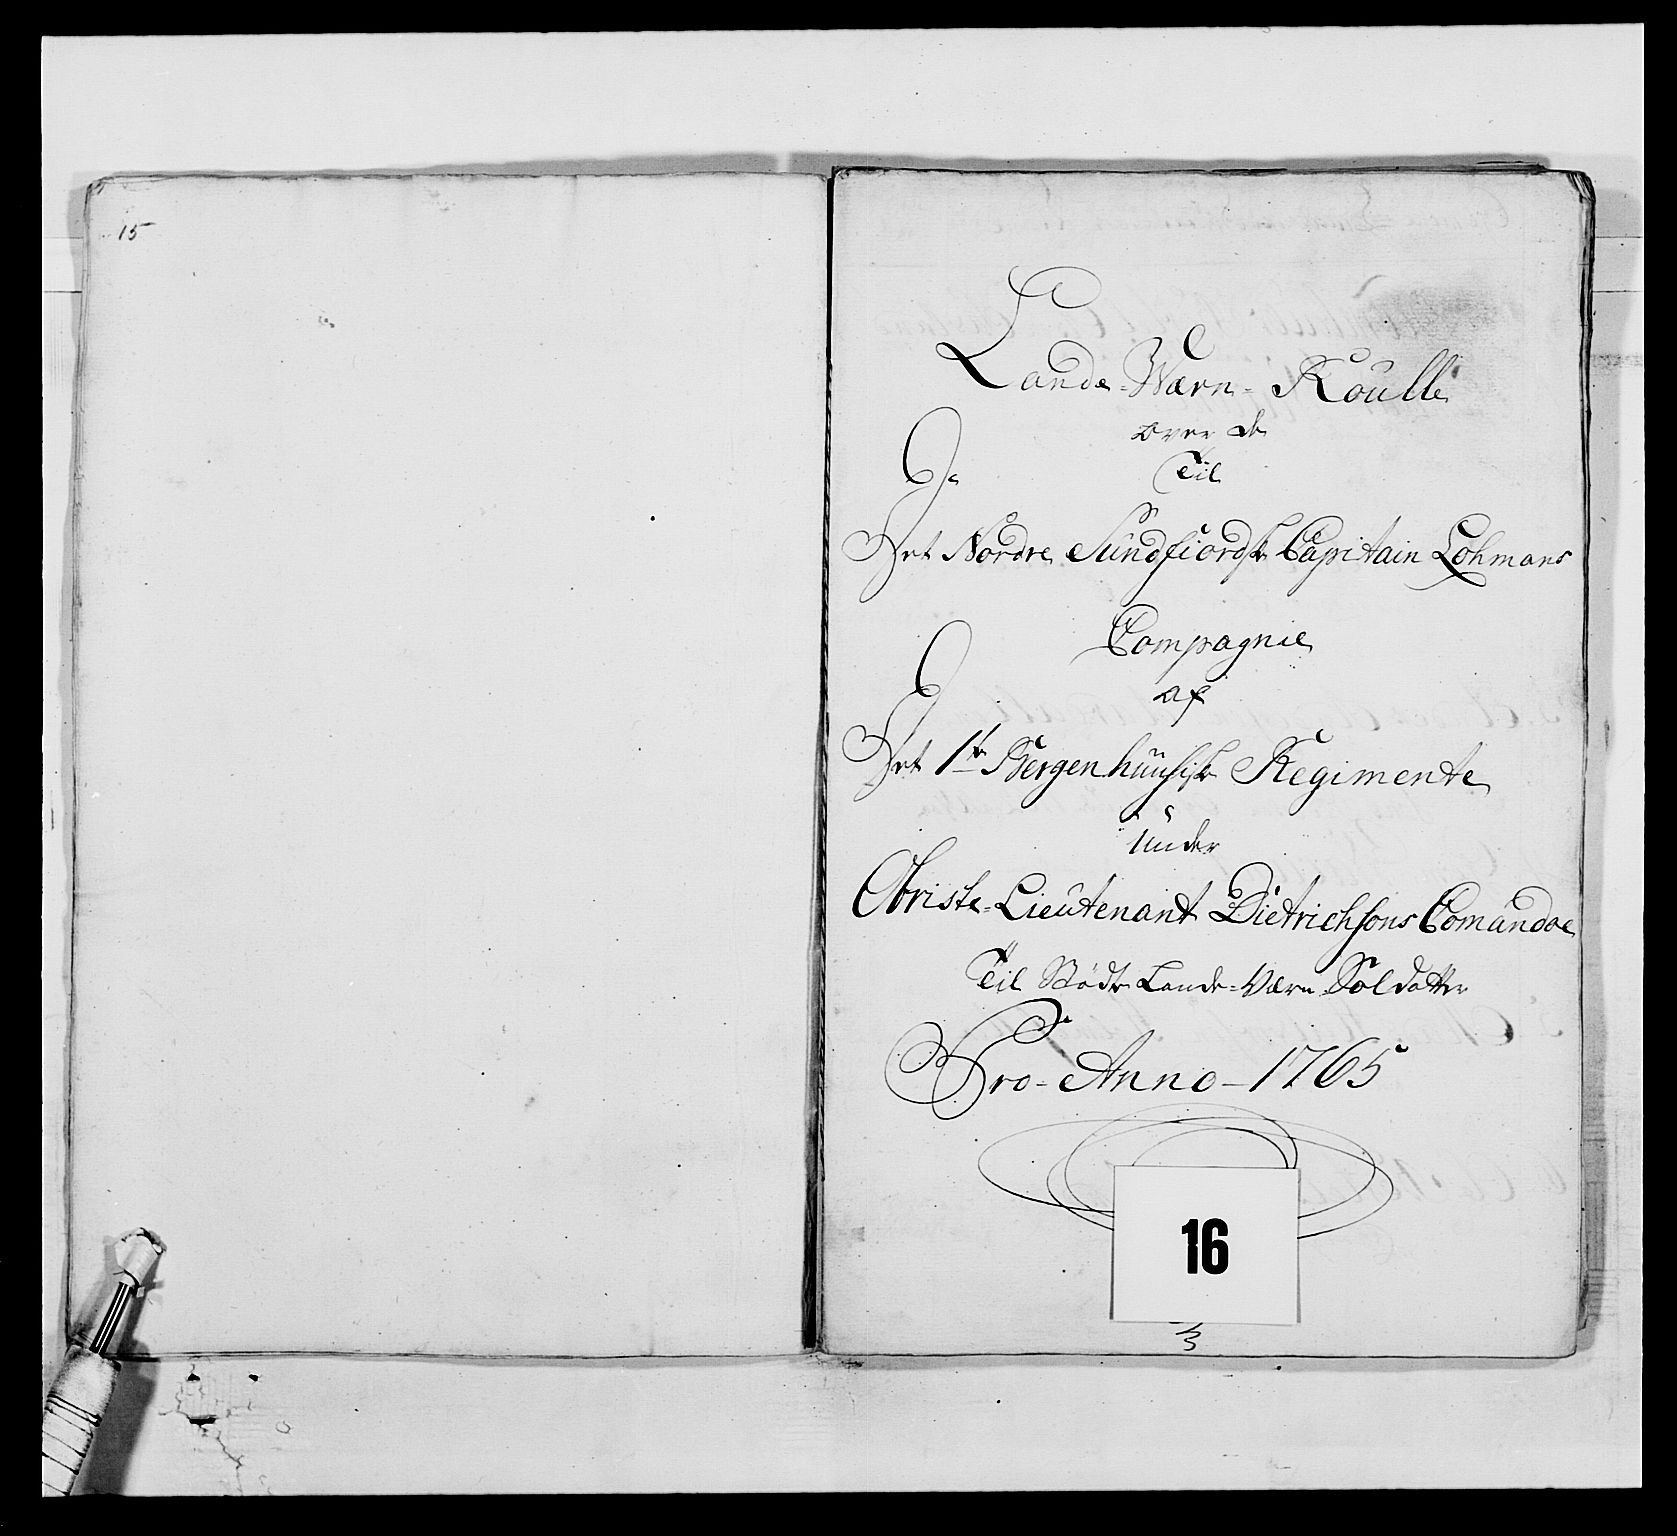 15
Lande-Wærn-Roulle
over de
Til
Det Nordre Sundfiordske Capitain Lohmans
Compagnie
af
Det 1te Bergenhuusiske Regimente
Under
Obriste-Lieutenant Dietrichsons Comando
Til Stødte Lande-Værn-Soldatter
Pro-Anno-1765
16